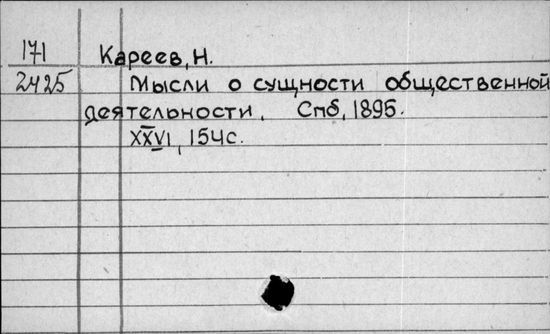 171 Кареев, Н.
2425 Мысли о сущности общественной
деятельности, Спб, 1895.
XXVI, 154с.